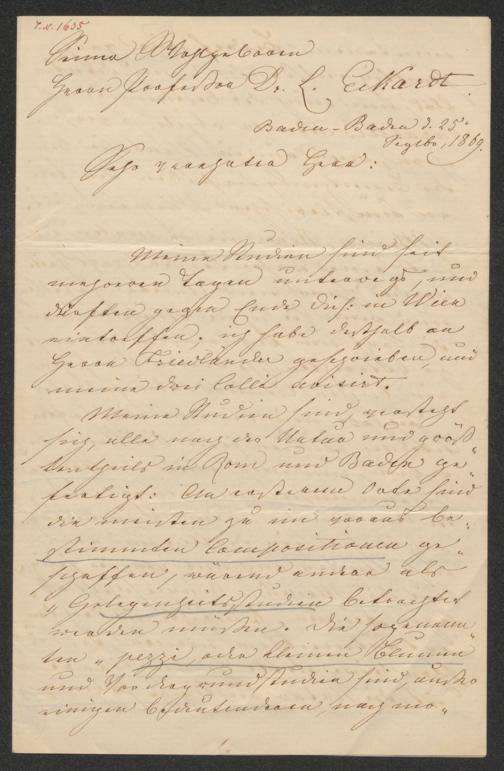 I. N. 1635
Seiner Wohlgeboren
Herrn Professor Dr. L. Eckardt.
Baden-Baden d. 25.
Septbr. 1869.
Sehr verehrter Herr:
Meine Studien sind seit
mehreren Tagen unterwegs, und
dürften gegen Ende dieß. in Wien
eintreffen. ich habe deßhalb an
Herrn Friedländer geschrieben, und
meine drei Colli avisirt.
Meine Studien sind, versteht
sich, alle nach der Natur und größ
tentheils in Rom und Baden ge„
fertigt: An ersterem Orte sind
die meisten zu im voraus be„
stimmten Compositionen ge„
schaffen, während andere als
„Gelegenheitsstudien betrachtet
werden müssen. Die sogenann
ten „pezzi, oder kleinen Blumen„
und Vordergrundstudien sind, außer
einigen bedeutenderen, nach mo„